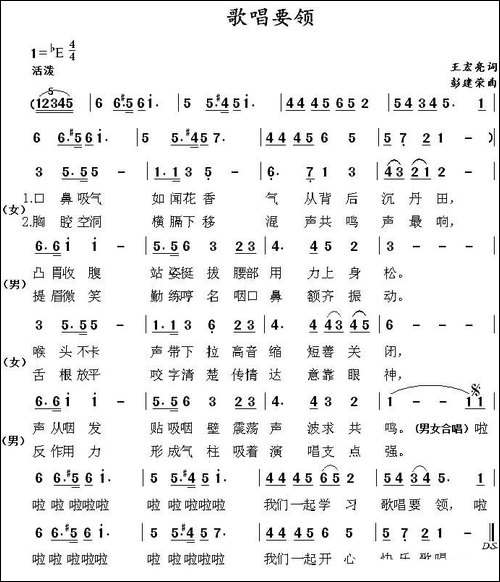 歌唱要领
1=♭E 4/4
活泼
王宏亮词
彭建荣曲
(12345 | 6 6·♯5 6 i· | 5 5·♯4 5 i· | 4 4 4 5 6 5 2 | 5 4 3 4 5 i· |
6 6·♯5 6 i· | 5 5·♯4 5 i· | 4 4 4 5 6 5 2 | 5 7 2 1 — )
3 5·5 5 — | 1·1 3 5 — | 6· 7 1 3 | 4 3 2 1 2 — |
(女) 1.口 鼻 吸气 如 闻花 香 气 从背 后 沉 丹 田,
2.胸 腔 空洞 横 膈下 移 混 声共 鸣 声 最 响,
6·6 i i — | 5·5 6 3 2 3 3 | 4· 4 3 5 | 3 — — — |
(男) 凸 胃收 腹 站 姿挺 拔 腰部 用 力上 身 松。
提 眉微 笑 勤 练哼 名 咽口 鼻 额齐 振 动。
3 5·5 5 — | 1·1 3 6 2 3 2 | 4· 4 4 3 4 5 | 6 — — — |
(女) 喉 头不 卡 声 带下 拉 高音 缩 短善 关 闭,
舌 根放 平 咬 字清 楚 传情 达 意靠 眼 神,
6·6 i i — | 5·5 6 3 2 3 3 | 4· 3 2 3 | 1 — — 1 1 |
(男) 声 从咽 发 贴 吸咽 壁 震荡 声 波求 共 鸣。(男女合唱) 啦
反 作用 力 形 成气 柱 吸着 演 唱支 点 强。
6 6·♯5 6 i· | 5 5·♯4 5 i· | 4 4 4 5 6 5 2 | 5 4 3 4 5 i· |
啦 啦 啦啦啦 啦 啦 啦啦啦 我们一起 学 习 歌唱要 领, 啦
6 6·♯5 6 i· | 5 5·♯4 5 i· | 4 4 4 5 6 5 2 | 5 7 2 1 —
D.S.
啦 啦 啦啦啦 啦 啦 啦啦啦 我们一起 开 心 快乐 歌唱